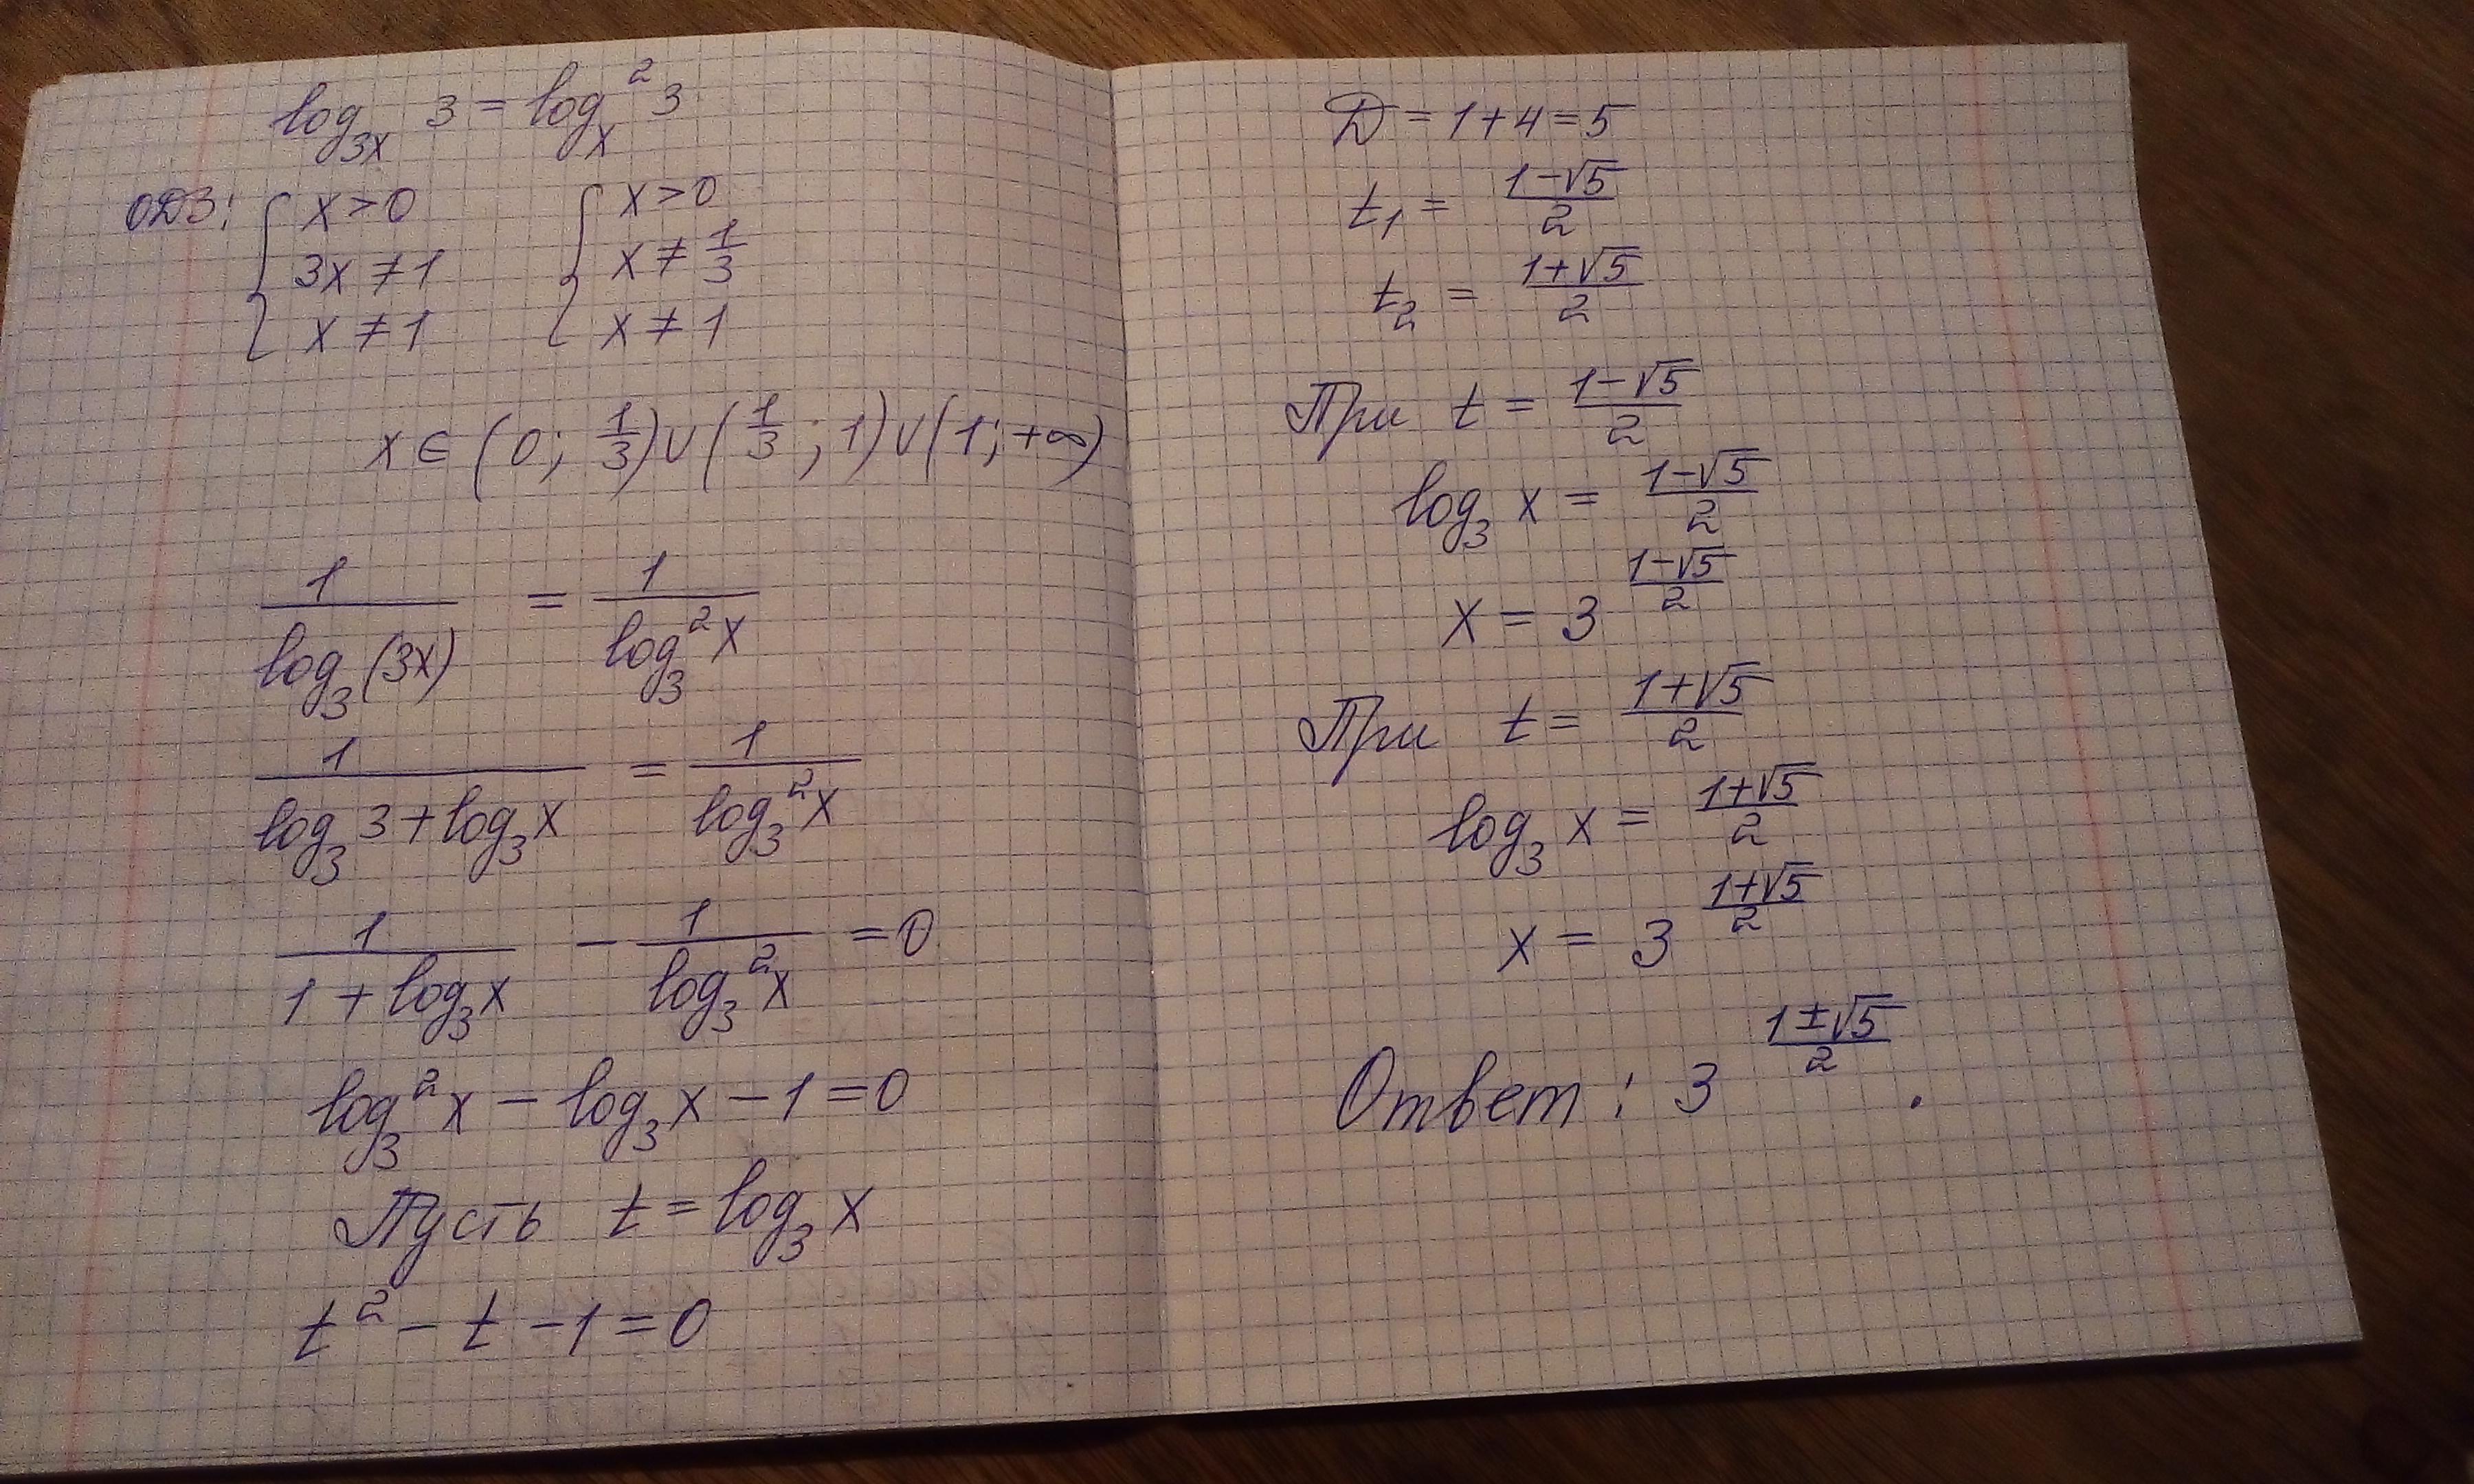 log_{3x} 3 = log_x^2 3
ОДЗ: { x > 0 { x > 0
3x ≠ 1 x ≠ 1/3
x ≠ 1 x ≠ 1
x ∈ (0; 1/3) ∪ (1/3; 1) ∪ (1; +∞)
1/(log_3 (3x)) = 1/(log_3^2 x)
1/(log_3 3 + log_3 x) = 1/(log_3^2 x)
1/(1 + log_3 x) - 1/(log_3^2 x) = 0
log_3^2 x - log_3 x - 1 = 0
Пусть t = log_3 x
t^2 - t - 1 = 0
D = 1 + 4 = 5
t_1 = (1-√5)/2
t_2 = (1+√5)/2
При t = (1-√5)/2
log_3 x = (1-√5)/2
x = 3^((1-√5)/2)
При t = (1+√5)/2
log_3 x = (1+√5)/2
x = 3^((1+√5)/2)
Ответ: 3^((1±√5)/2).